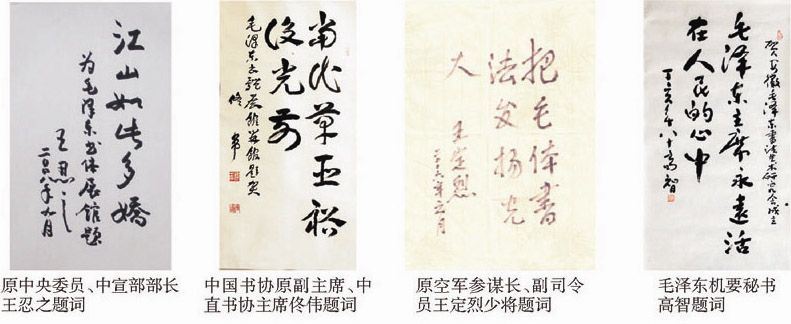 江山如此多嬌
为毛泽东书体展馆题
王忍之
二〇〇八年九月
当代草圣裕
后光前
毛泽东书体展馆开馆题贺
把毛体书
法发扬光
大
王定烈
贺安徽毛泽东书法艺术研究会成立
毛泽东主席永远活
在人民的心中
丁亥年八十高智
原中央委员、中宣部部长
王忍之题词
中国书协原副主席、中
直书协主席佟伟题词
原空军参谋长、副司令
员王定烈少将题词
毛泽东机要秘书
高智题词